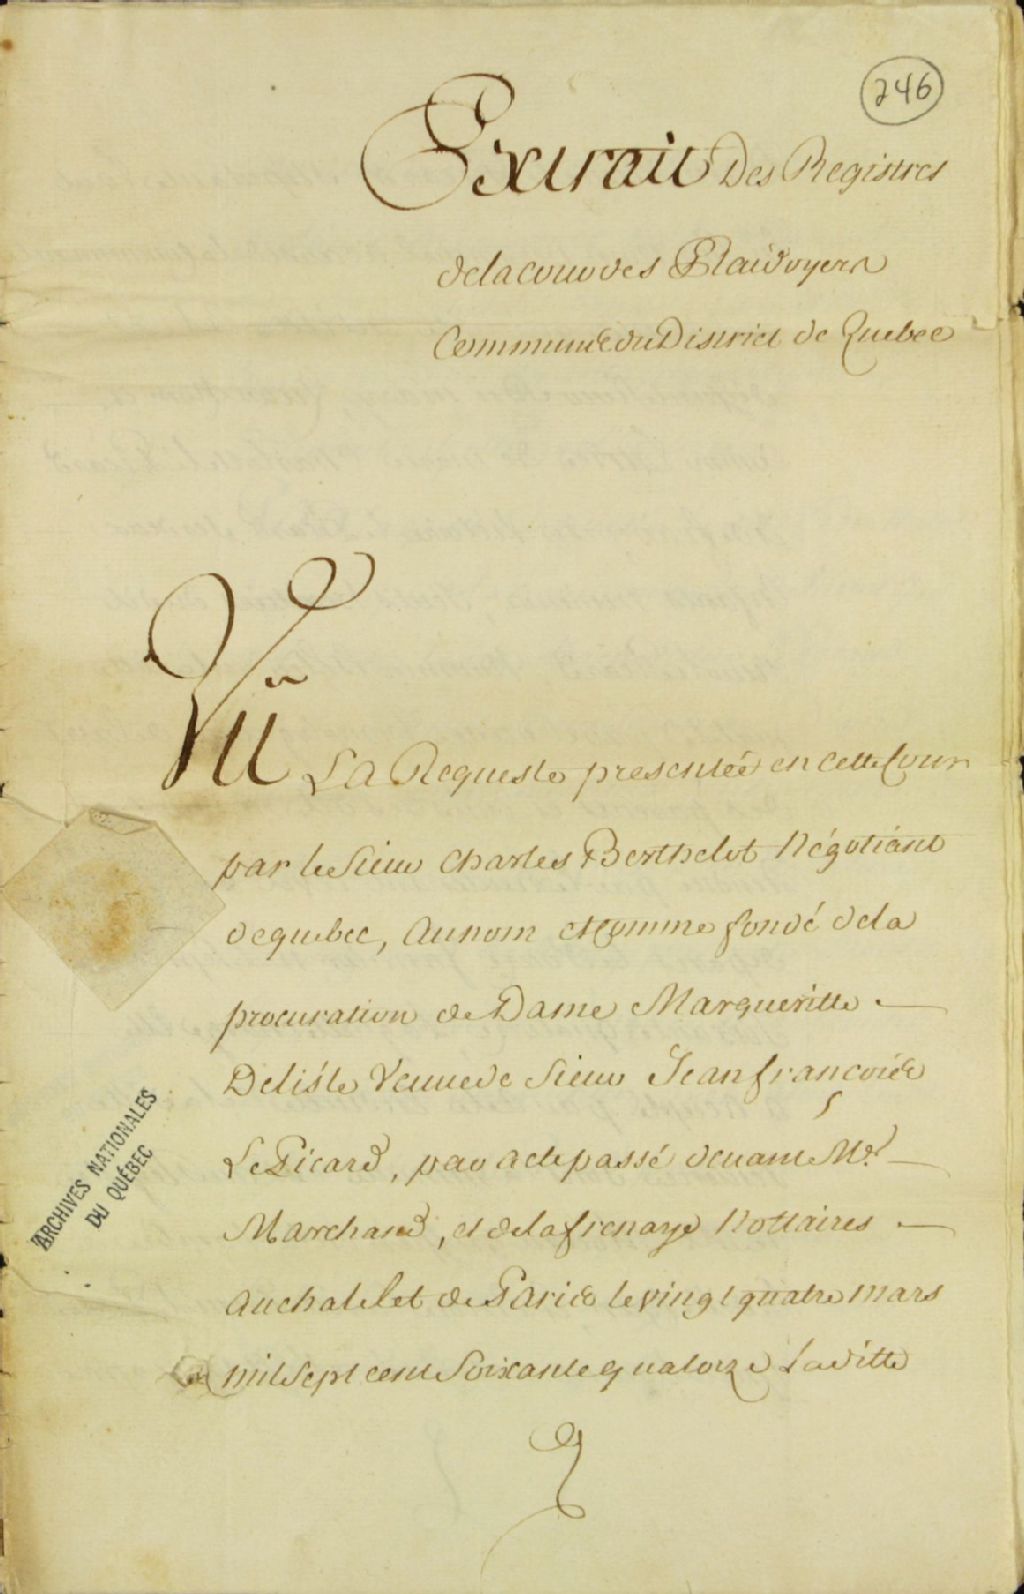 246
Extrait Des Registres
de la cour des Plaidoyers
Commune du District de Quebec
Vû La Requeste presentée en cette Cour
par le Sieur Charles Berthelot Négotiant
de quebec, au nom et comme fondé de la
procuration de Dame Margueritte
Delisle Veuve de Sieur Jean françois
Le Picard, par acte passé devant Mrs
Marchand, et delafrenaye Nottaires
au chatelet de Paris le vingt quatre mars
mil sept cent soixante quatorze Laditte
ARCHIVES NATIONALES
DU QUÉBEC